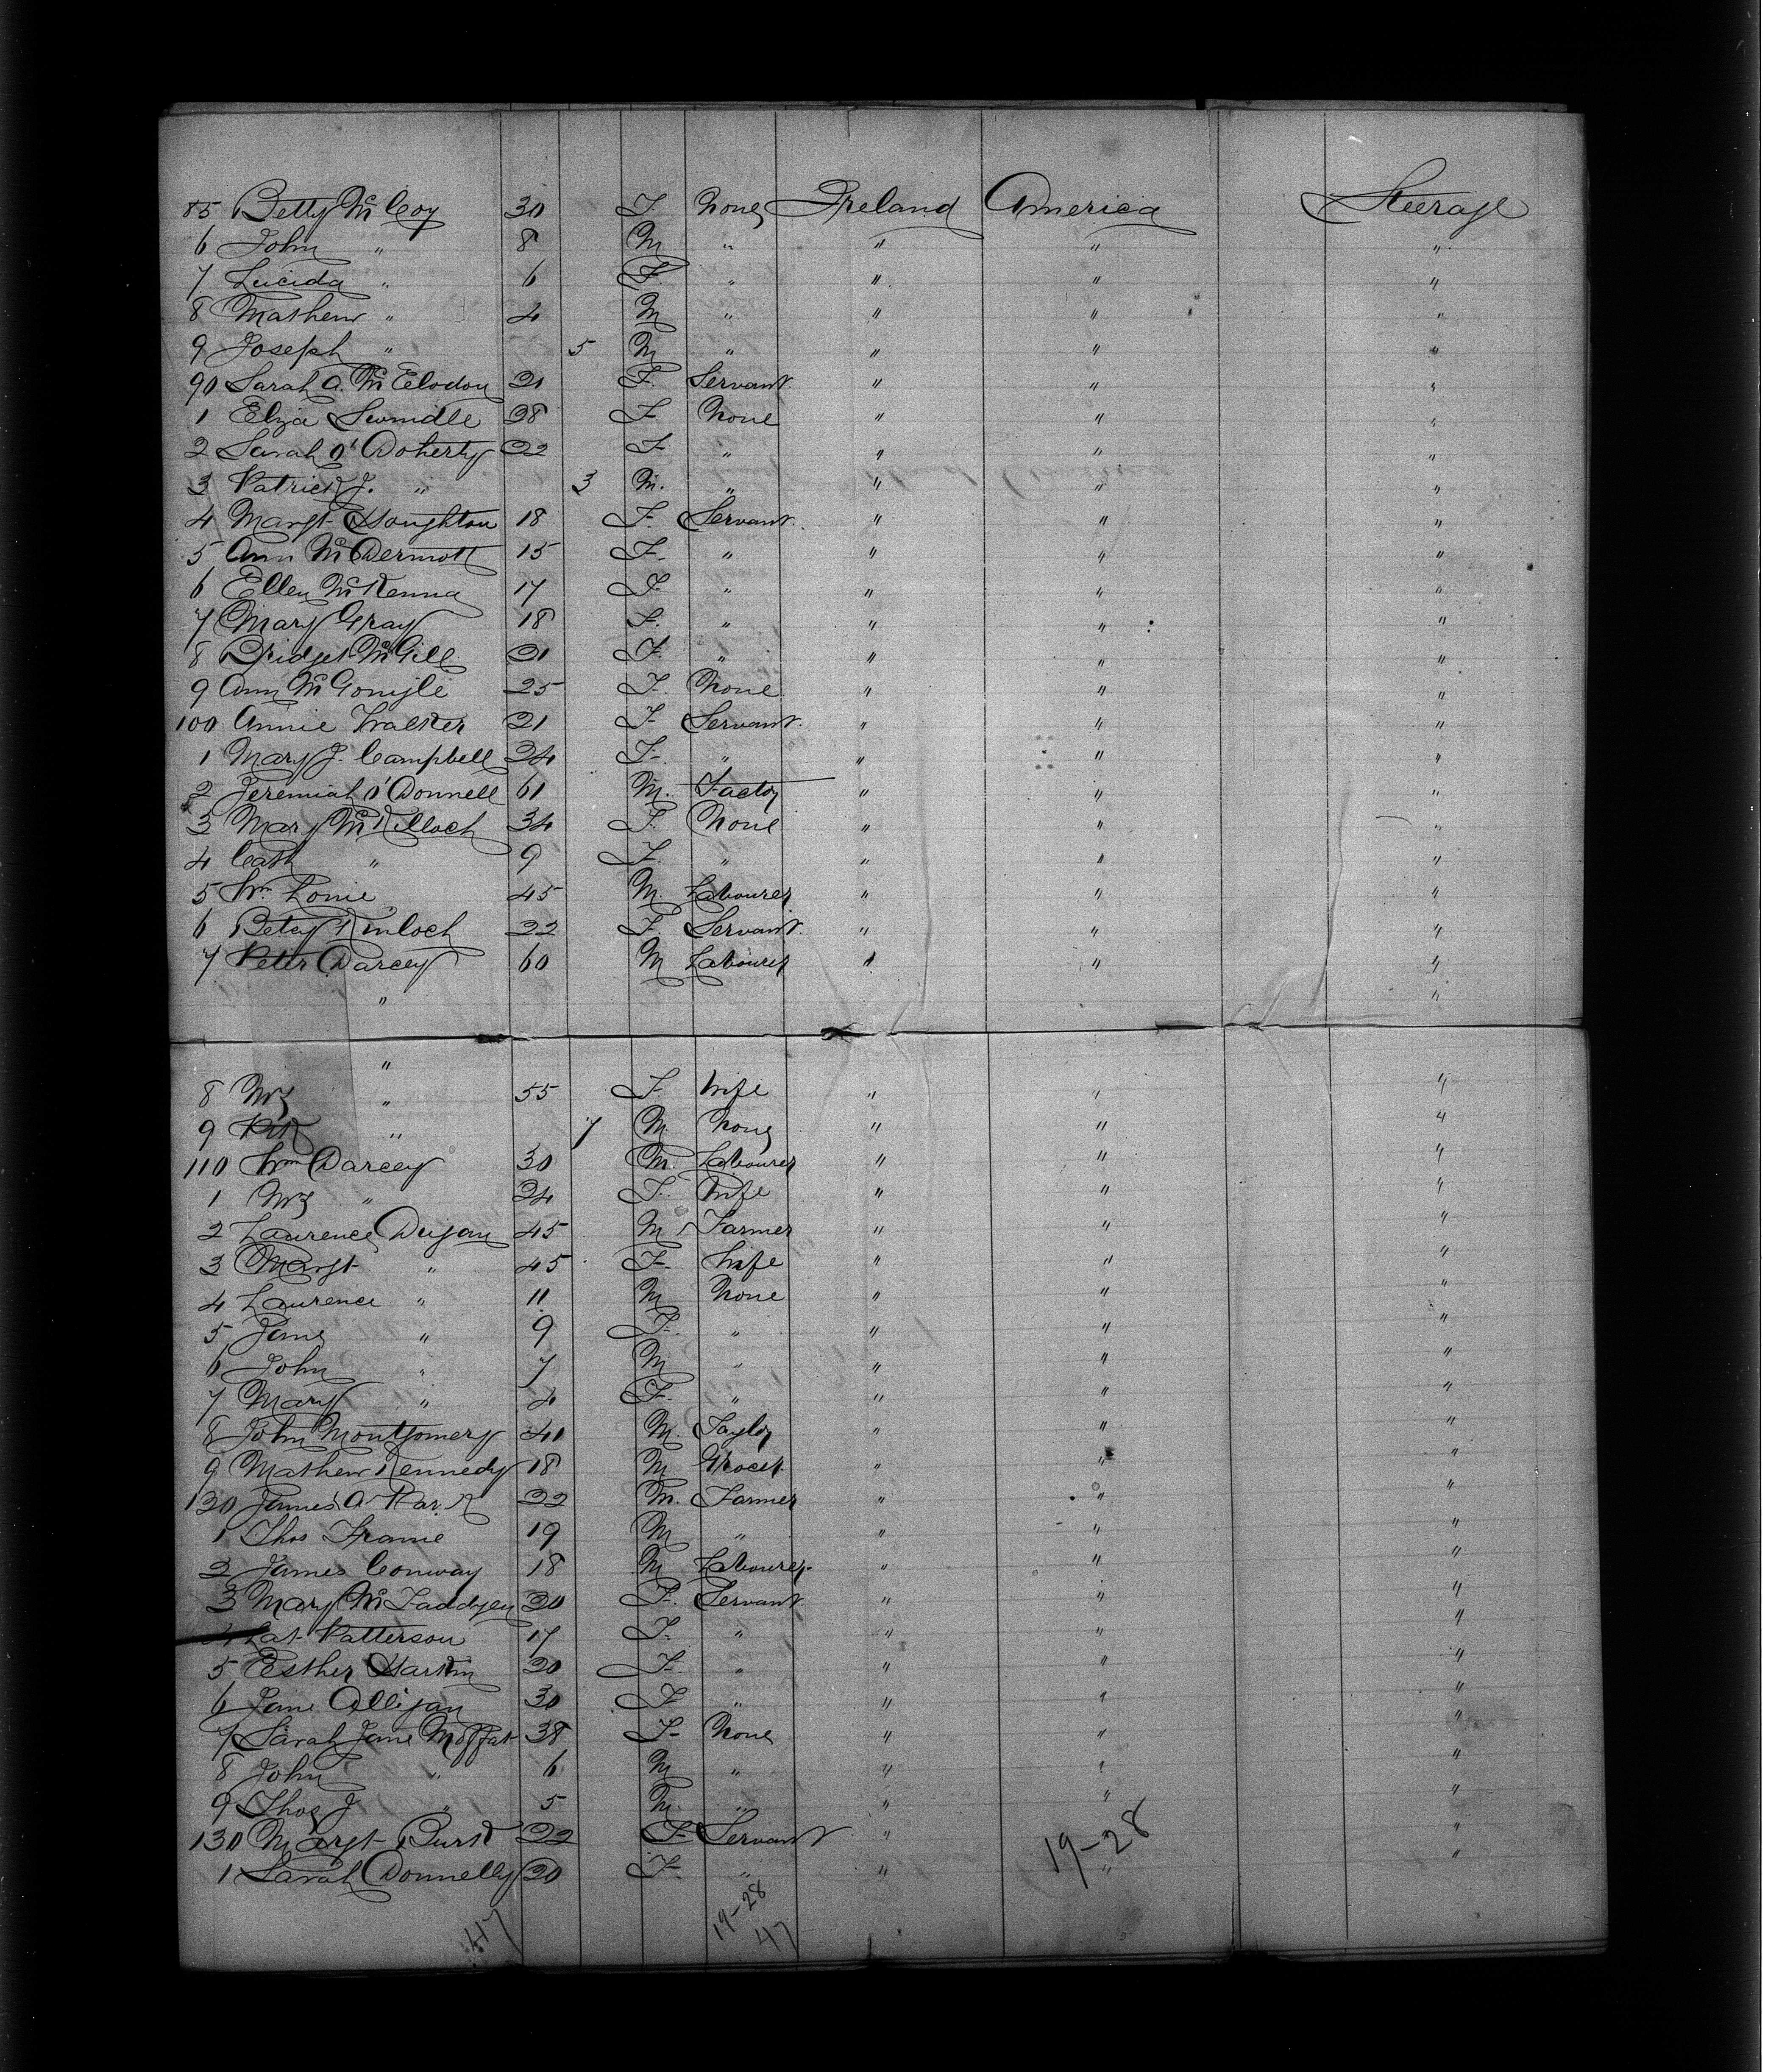 85 Betty McCoy 30 F None Ireland America Steerage
6 John " 8 M " " " "
7 Lucida " 6 F " " " "
8 Mathew " 4 M " " " "
9 Joseph " 5 M " " " "
90 Sarah A. McElodou 21 F. Servant " " "
1 Eliza Swindle 28 F None " " "
2 Sarah O'Doherty 22 F " " " "
3 Patrick J. " 3 M. " " " "
4 Margt Houghton 18 F. Servant " " "
5 Ann McDermott 15 F " " " "
6 Ellen McKenna 17 F " " " "
7 Mary Gray 18 F. " " " "
8 Bridget McGill 21 F. " " " "
9 Ann McGonigle 25 F. None " " "
100 Annie Walker 21 F Servant " " "
1 Mary J. Campbell 24 F. " " " "
2 Jeremiah O'Donnell 61 M. Factoy " " "
3 Mary McKilloch 34 F. None " " "
4 Cath " 9 F. " " " "
5 Wm 45 M. Labourer " " "
6 Betsy Kinloch 22 F. Servant " " "
7 Peter Darcey 60 M Labourer " " "
" "
"
8 Mrs " 55 F Wife " " "
9 Ptk " 7 M None " " "
110 Wm Darcey 30 M. Labourer " " "
1 Mrs " 24 F. Wife " " "
2 Laurence Dugan 45 M Farmer " " "
3 Margt " 45 F. Wife " " "
4 Laurence " 11 M None " " "
5 Jane " 9 F. " " " "
6 John " 7 M " " " "
7 Mary " 4 F. " " " "
8 John Montgomery 41 M. Taylor " " "
9 Mathew Kennedy 18 M Grocer " " "
120 James A Park 22 M. Farmer " " "
1 Thos Frame 19 M " " " "
2 James Conway 18 M Labourer " " "
3 Mary McFaddyen 20 F. Servant " " "
4 Patterson 17 F. " " " "
5 Esther Harkin 20 F. " " " "
6 Jane Alligan 30 F " " " "
7 Sarah Jane Moffat 38 F None " " "
8 John " 6 M " " " "
9 Thos J " 5 M. " " " "
130 Margt Burk 22 F Servant " " "
1 Sarah Donnelly 20 F. " " " "
19-28
47 19-28
47